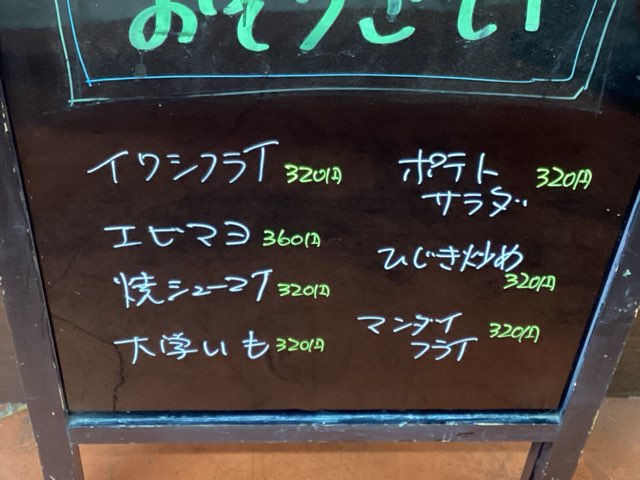 おそうざい
イワシフライ 320円
エビマヨ 360円
焼シューマイ 320円
大学いも 320円
ポテト
サラダ 320円
ひじき炒め
320円
マンダイ
フライ 320円